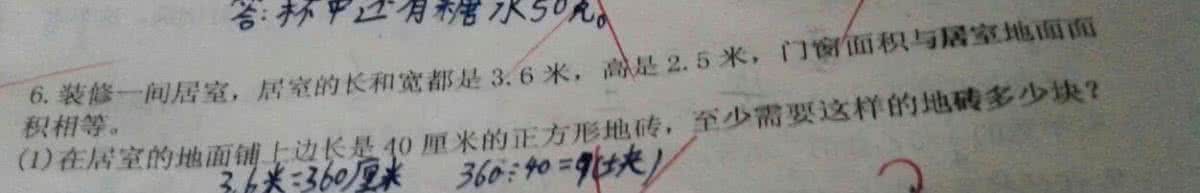 答:杯中还有糖水50克。
6. 装修一间居室，居室的长和宽都是 3.6 米，高是 2.5 米，门窗面积与居室地面面
积相等。
(1)在居室的地面铺上边长是 40 厘米的正方形地砖，至少需要这样的地砖多少块?
3.6米=360厘米 360÷40=9(块)